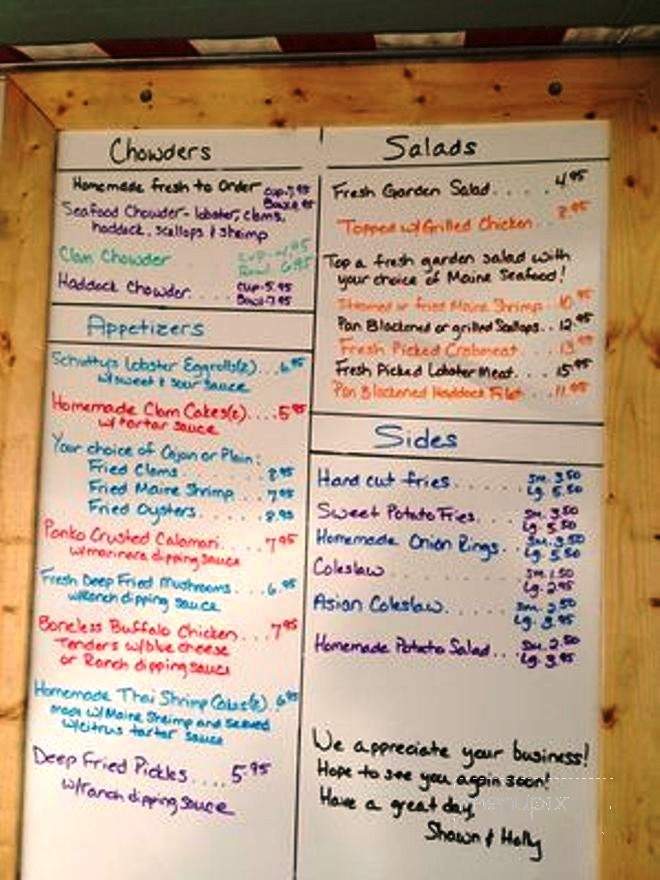 Chowders
Homemade fresh to Order
Seafood Chowder - lobster, clams, haddock, scallops & shrimp
Clam Chowder
Bowl 6.95
Haddock Chowder. . . . Cup - 5.95
Bowl - 7.95
Appetizers
Lobster Eggrolls(2) . . . 6.95
w/sweet & sour sauce
Homemade Clam Cakes(6) . . . . 5.95
w/ tartar sauce
Your choice of Cajun or Plain:
Fried Clams . . . . . 8.95
Fried Maine Shrimp . . . 7.95
Fried Oysters . . . . . 8.95
Panko Crusted Calamari . . . . 7.95
w/marinara dipping sauce
Fresh Deep Fried Mushrooms . . . 6.95
w/ranch dipping sauce
Boneless Buffalo Chicken . . . 7.95
Tenders w/blue cheese
or Ranch dipping sauce
Homemade Thai Shrimp Cakes(2) . 6.95
made w/Maine Shrimp and served
w/citrus tartar sauce
Deep Fried Pickles . . . . 5.95
w/ranch dipping sauce
Salads
Fresh Garden Salad . . . . . 4.95
Topped w/Grilled Chicken . . . 8.95
Top a fresh garden salad with
your choice of Maine Seafood!
Steamed or fried Maine Shrimp . . 10.95
Pan Blackened or grilled Scallops . . 12.95
Fresh Picked Crabmeat . . . . 13.95
Fresh Picked Lobster Meat . . . . 15.95
Pan Blackened Haddock Filet . . . 11.95
Sides
Hand cut fries . . . . . . Sm. 3.50
Lg. 5.50
Sweet Potato Fries . . . . Sm. 3.50
Lg. 5.50
Homemade Onion Rings . . Sm. 3.50
Lg. 5.50
Coleslaw . . . . . . . . Sm. 1.50
Lg. 2.95
Asian Coleslaw . . . . . . Sm. 2.50
Lg. 3.95
Homemade Potato Salad . . . Sm. 2.50
Lg. 3.95
We appreciate your business!
Hope to see you again soon!
Have a great day,
Shawn & Holly
menupix